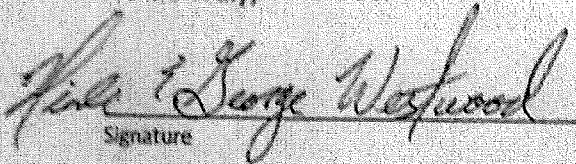 & George Westwood
Signature